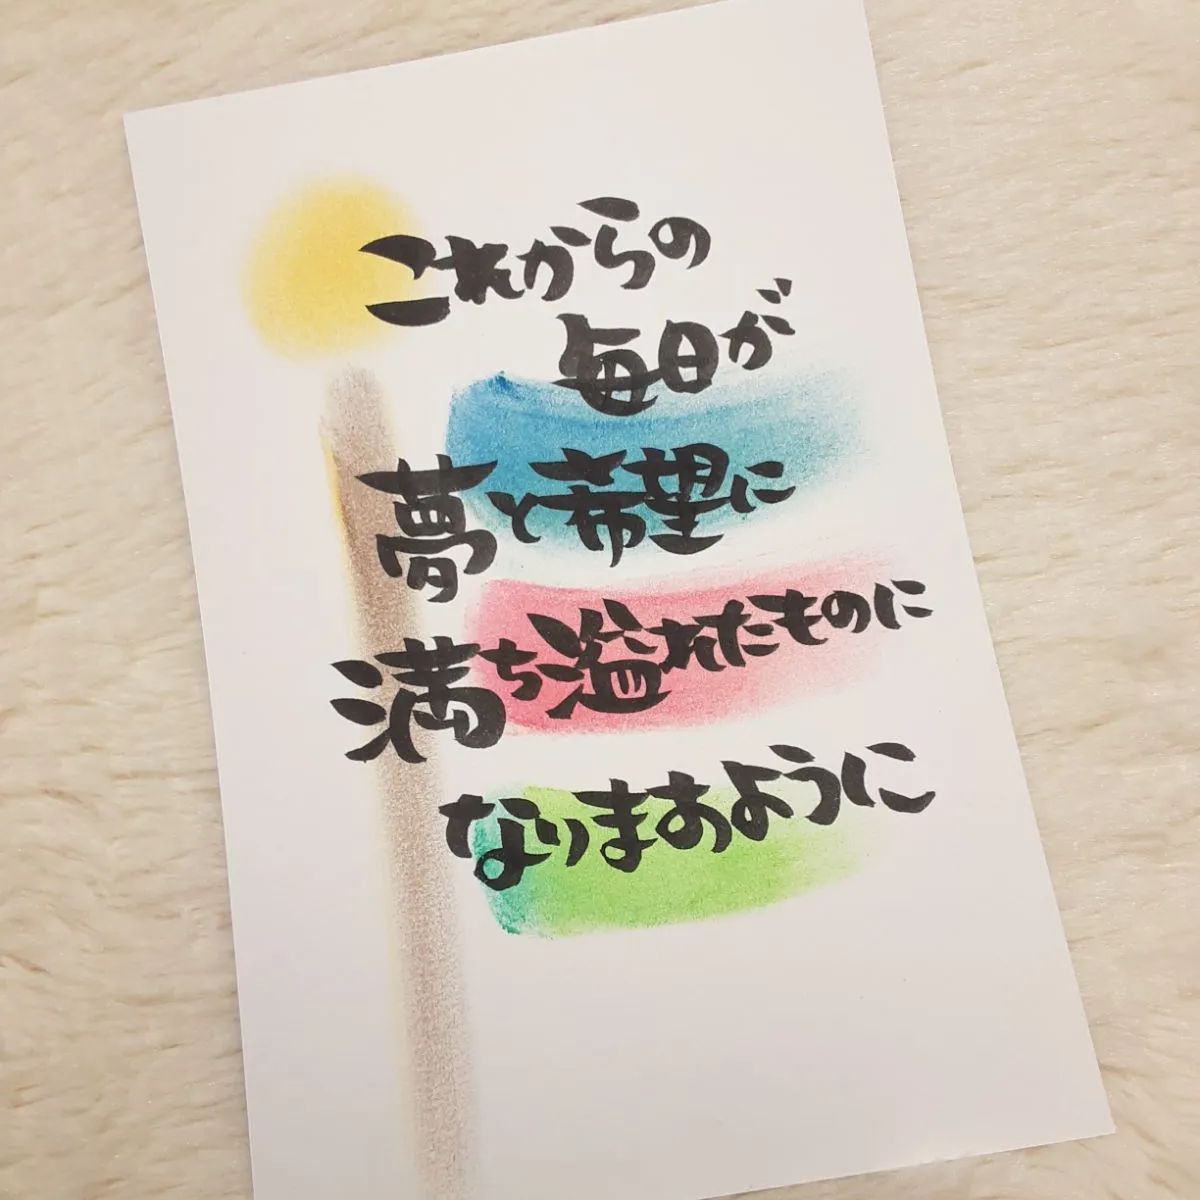 これからの
毎日が
夢と希望に
満ち溢れたものに
なりますように